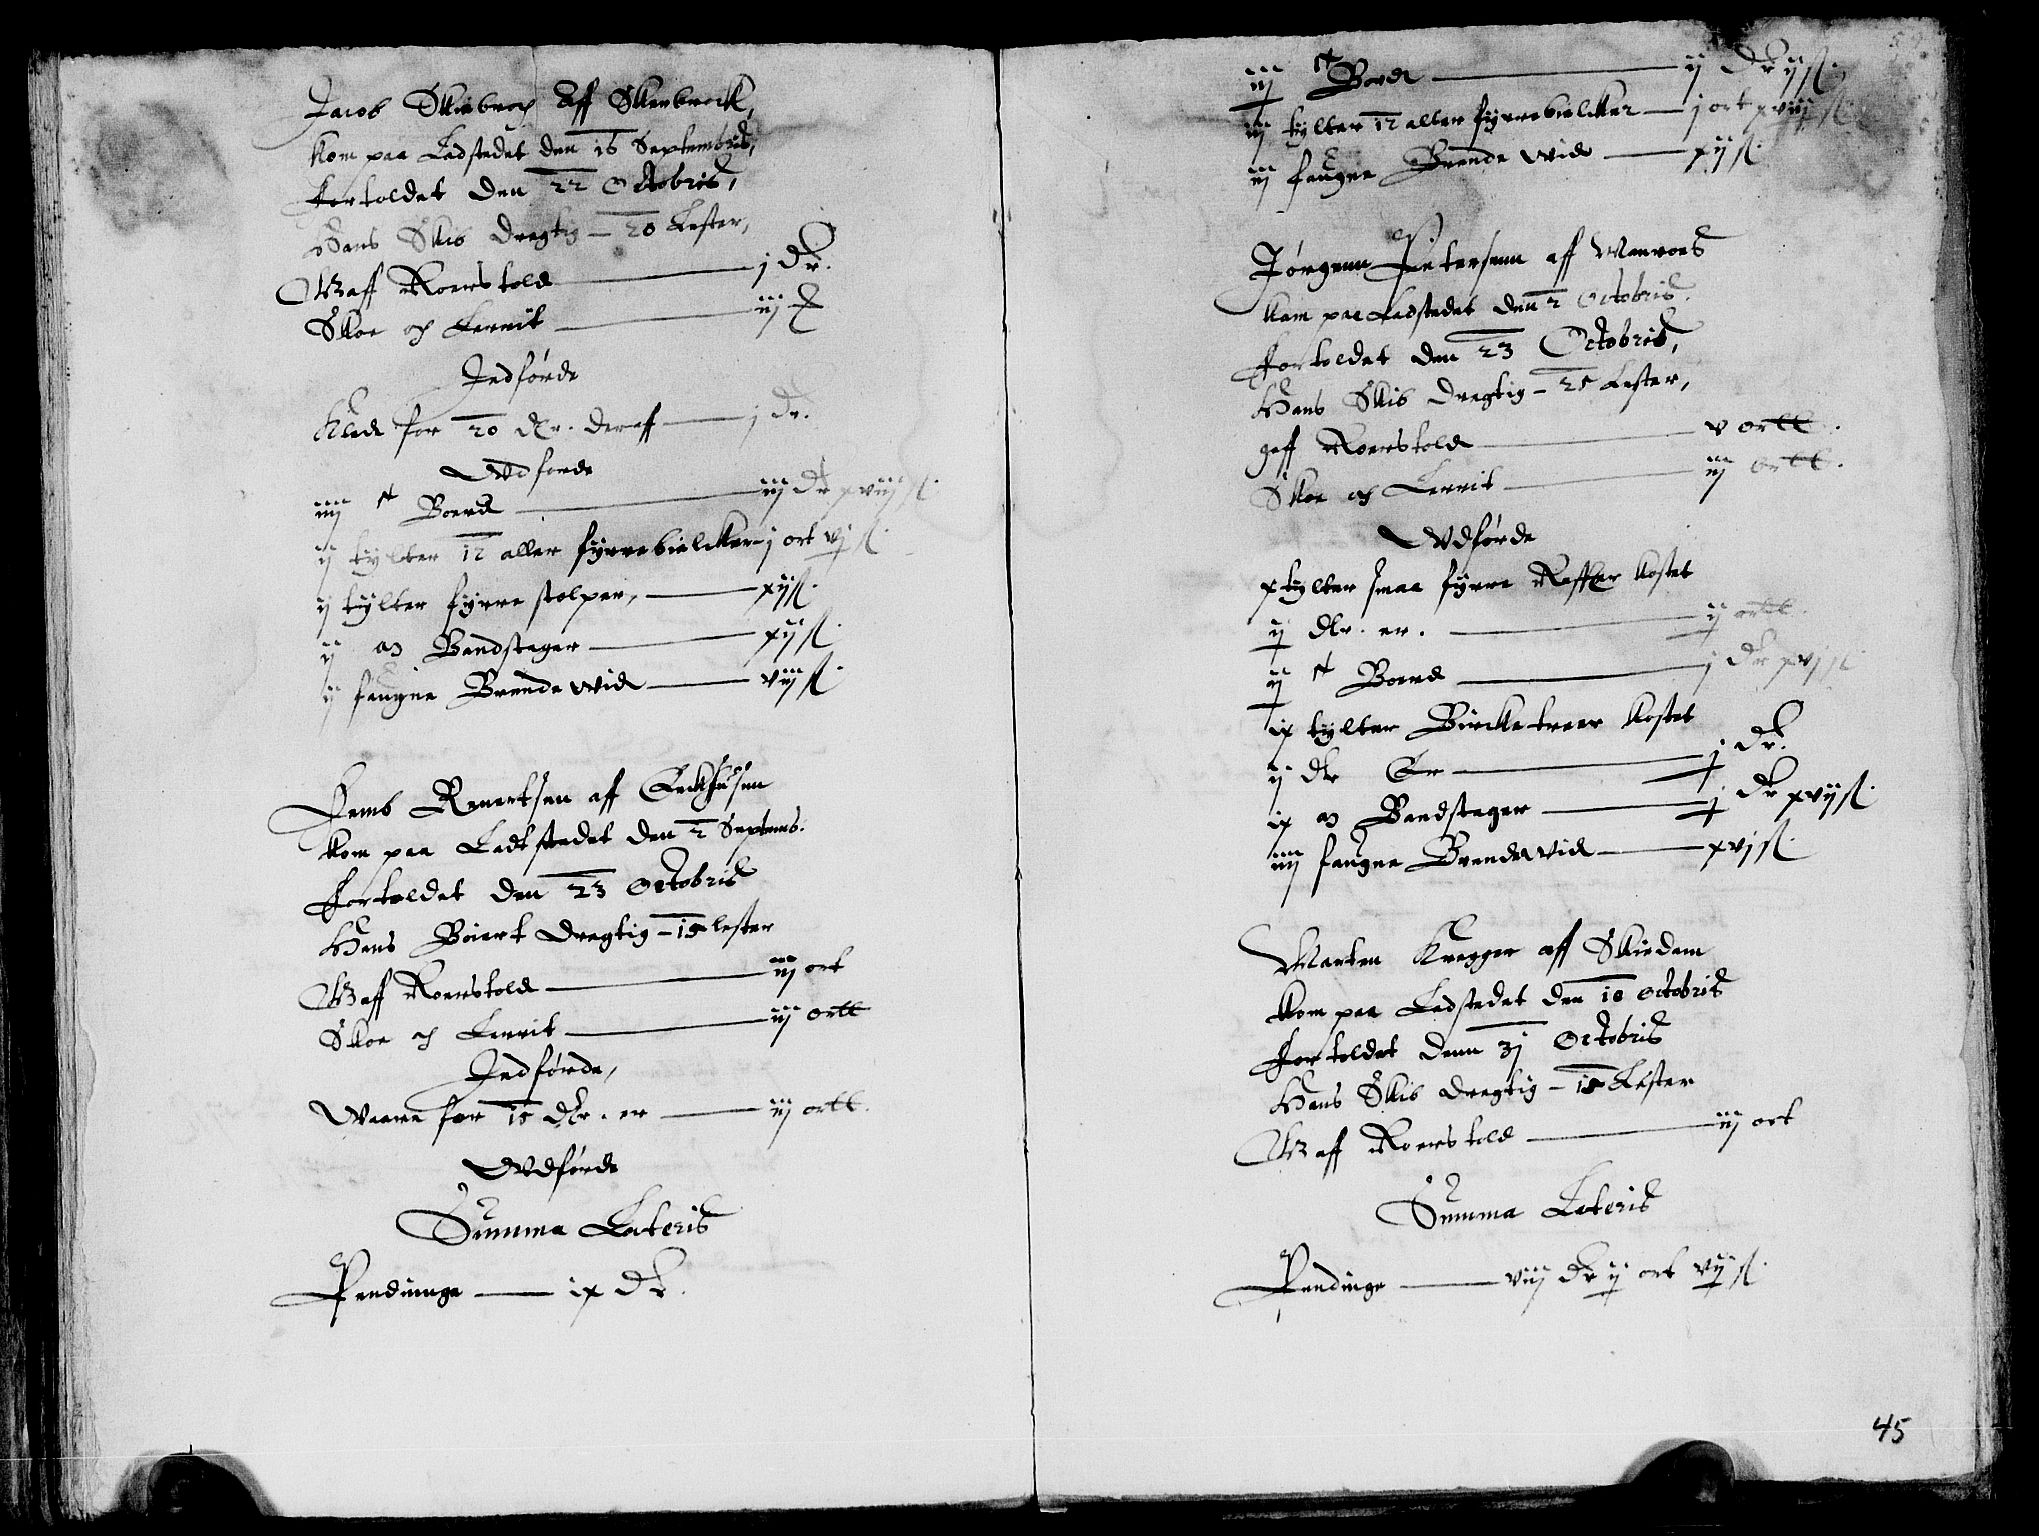 Jacob Skiebroch Aff Skenbrock,
kom paa Ladstedet den 16 Septembris,
Fortoldet den 22 Octobris,
Hans Skib dregtig - 20 Lester,
Gaff Roerstold j dr.
Skoe och Lerrit iij
Indførde
Klede for 20 dlr. deraff j dr.
Udførde
iiij Bords iij dr xviij ß.
ij tylter 12 aller fyrrebielcker j ort vj ß.
ij tylter fyrre stolper, xij ß.
ij m Bandstager xij ß.
ij faugne Brende wid viij ß.
Jens Remertsen aff
kom paa Ladtstedet den 2 Septemb.
Fortoldet den 23 Octobris
Hans Boiert dregtig - 15 lester
Gaff Roerstold iij ort
Skoe och Lerrit iij ortt
Indførde,
Waare for 15 dlr. er iij ortt.
Udførde
Summa Lateris
Pendinge ix dr.
iij Bords ij dr ij ß.
iij tylter 12 aller fyrrebielcker j ort xviij ß.
iij faugne Brende wid xij ß.
Jørgenn Petersenn aff
kom paa Ladstedet den 2 Octobris.
Fortoldet den 23 Octobris,
Hans Skib dregtig - 25 Lester,
gaff Roerstold v ortt.
Skoe och Lerrit iij ortt.
Udførde
x tylter smaa fyrre Raffter kostet
ij dlr. er. ij ortt.
ij Bords j dr xvj ß.
ix tylter Bircketreer kostet
ij dlr Er j dr.
ix m Bandstager j dr xvij ß.
iiij faugne Brendewid xvj ß.
Marten Kregger aff Skiedam
kom paa Ladstedet den 10 Octobris
Fortoldet denn 31 Octobris
Hans Skib dregtig - 15 Lester
Gaff Roerstold iij ort
Summa Lateris
Pendinge viij dr ij ort vij ß.
45